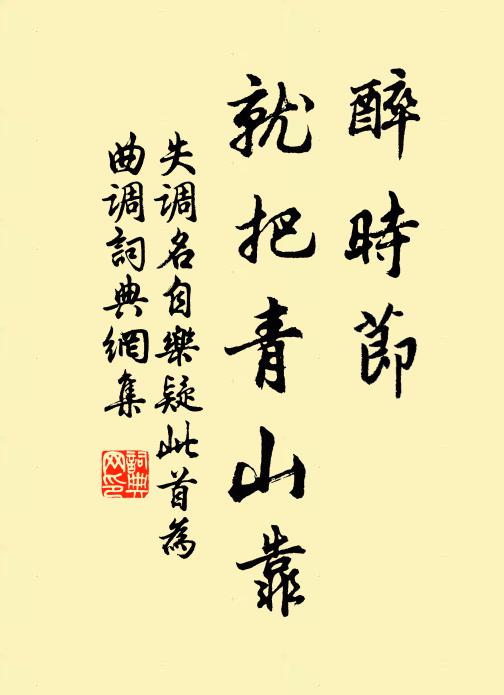 醉時節
就把青山靠
失调名自樂疑此首為
曲调詞典網集
詞典
网印